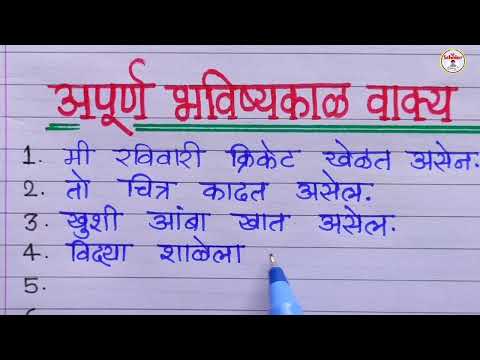 अपूर्ण भविष्यकाळ वाक्य
1. मी रविवारी क्रिकेट खेळत असेन.
2. तो चित्र काढत असेल.
3. खुशी आंबा खात असेल.
4. विद्या शाळेला
5.